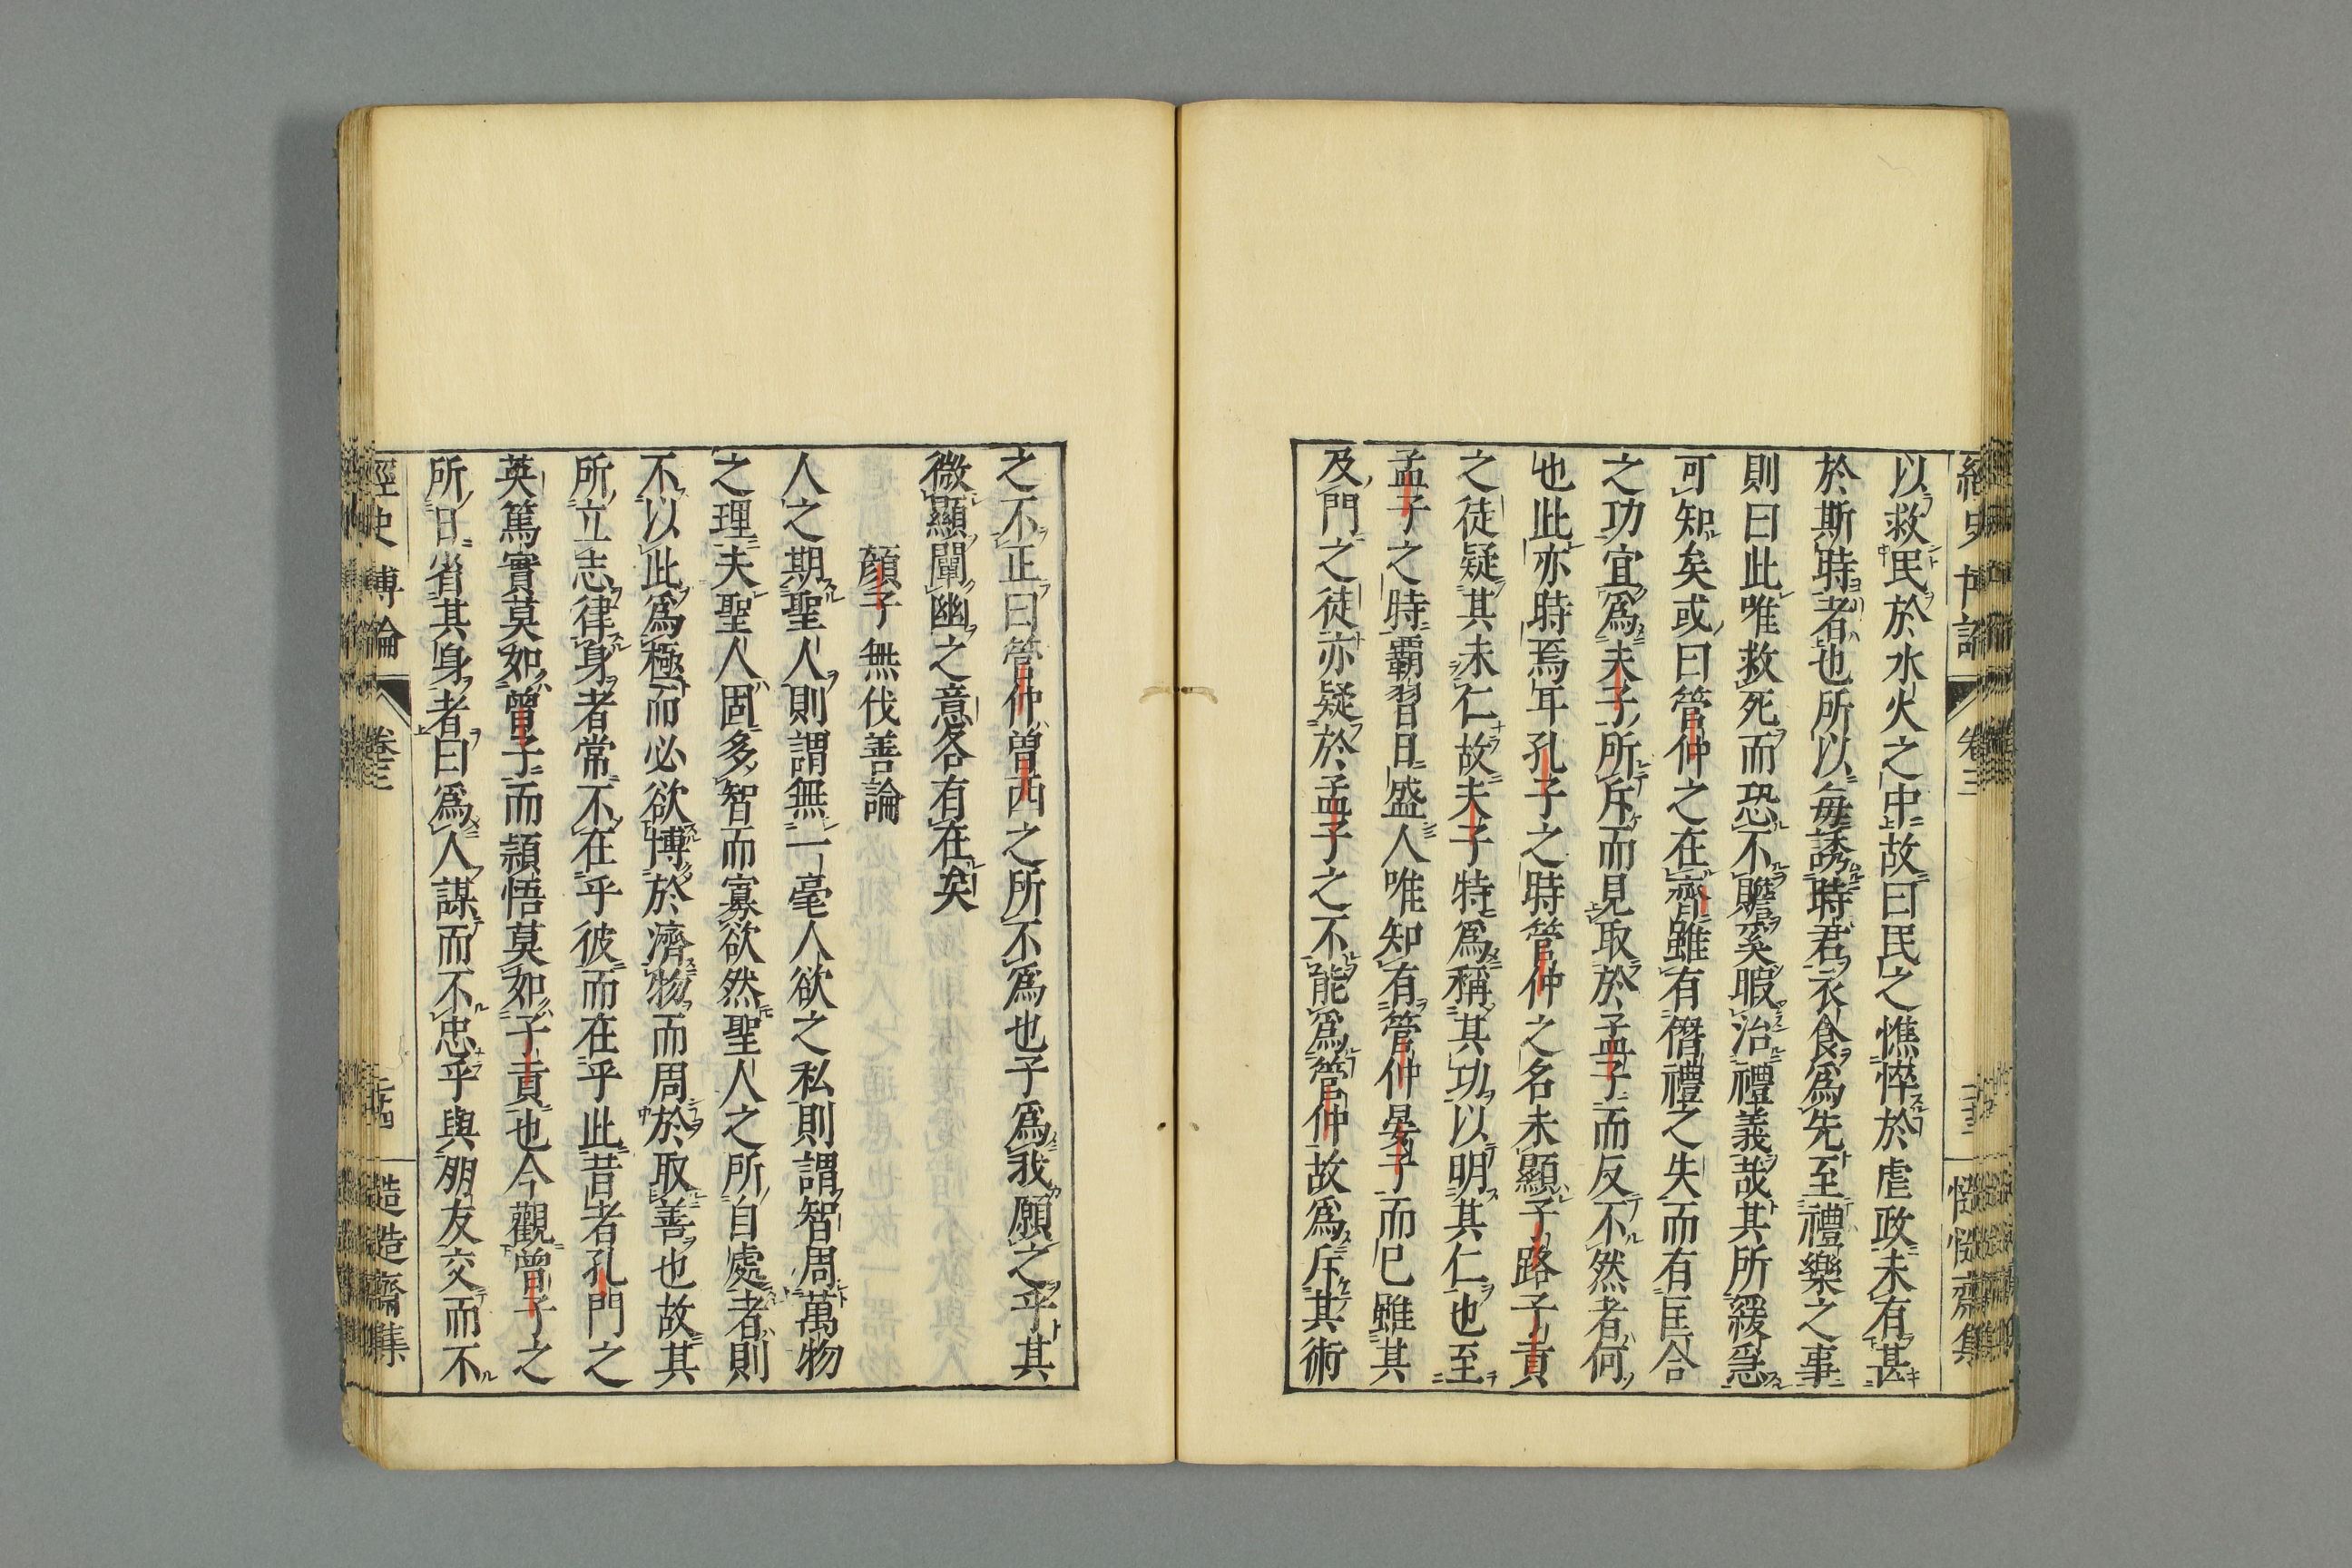 以救民於水火之中故曰民之憔悴於虐政未有甚
於斯時者也所以每誘時君衣食爲先至禮樂之事
則曰此唯救死而恐不贍奚暇治禮義哉其所緩急
可知矣或曰管仲之在齊雖有僭禮之失而有匡合
之功宜爲夫子所斥而見取於孟子而反不然者何
也此亦時焉耳孔子之時管仲之名未顯子路子貢
之徒疑其未仁故夫子特爲稱其功以明其仁也至
孟子之時覇習日盛人唯知有管仲晏子而已雖其
及門之徒亦疑於孟子之不能爲管仲故爲斥其術
之不正曰管仲曽西之所不爲也子爲我願之乎其
微顯闡幽之意各有在矣
顔子無伐善論
人之期聖人則謂無一毫人欲之私則謂智周萬物
之理夫聖人固多智而寡欲然聖人之所自處者則
不以此爲極而必欲博於濟物而周於取善也故其
所立志律身者常不在乎彼而在乎此昔者孔門之
英篤實莫如曾子而頴悟莫如子貢也今觀曾子之
所日省其身者曰爲人謀而不忠乎與朋友交而不
經史博論 卷三 二十四 慥慥齋集